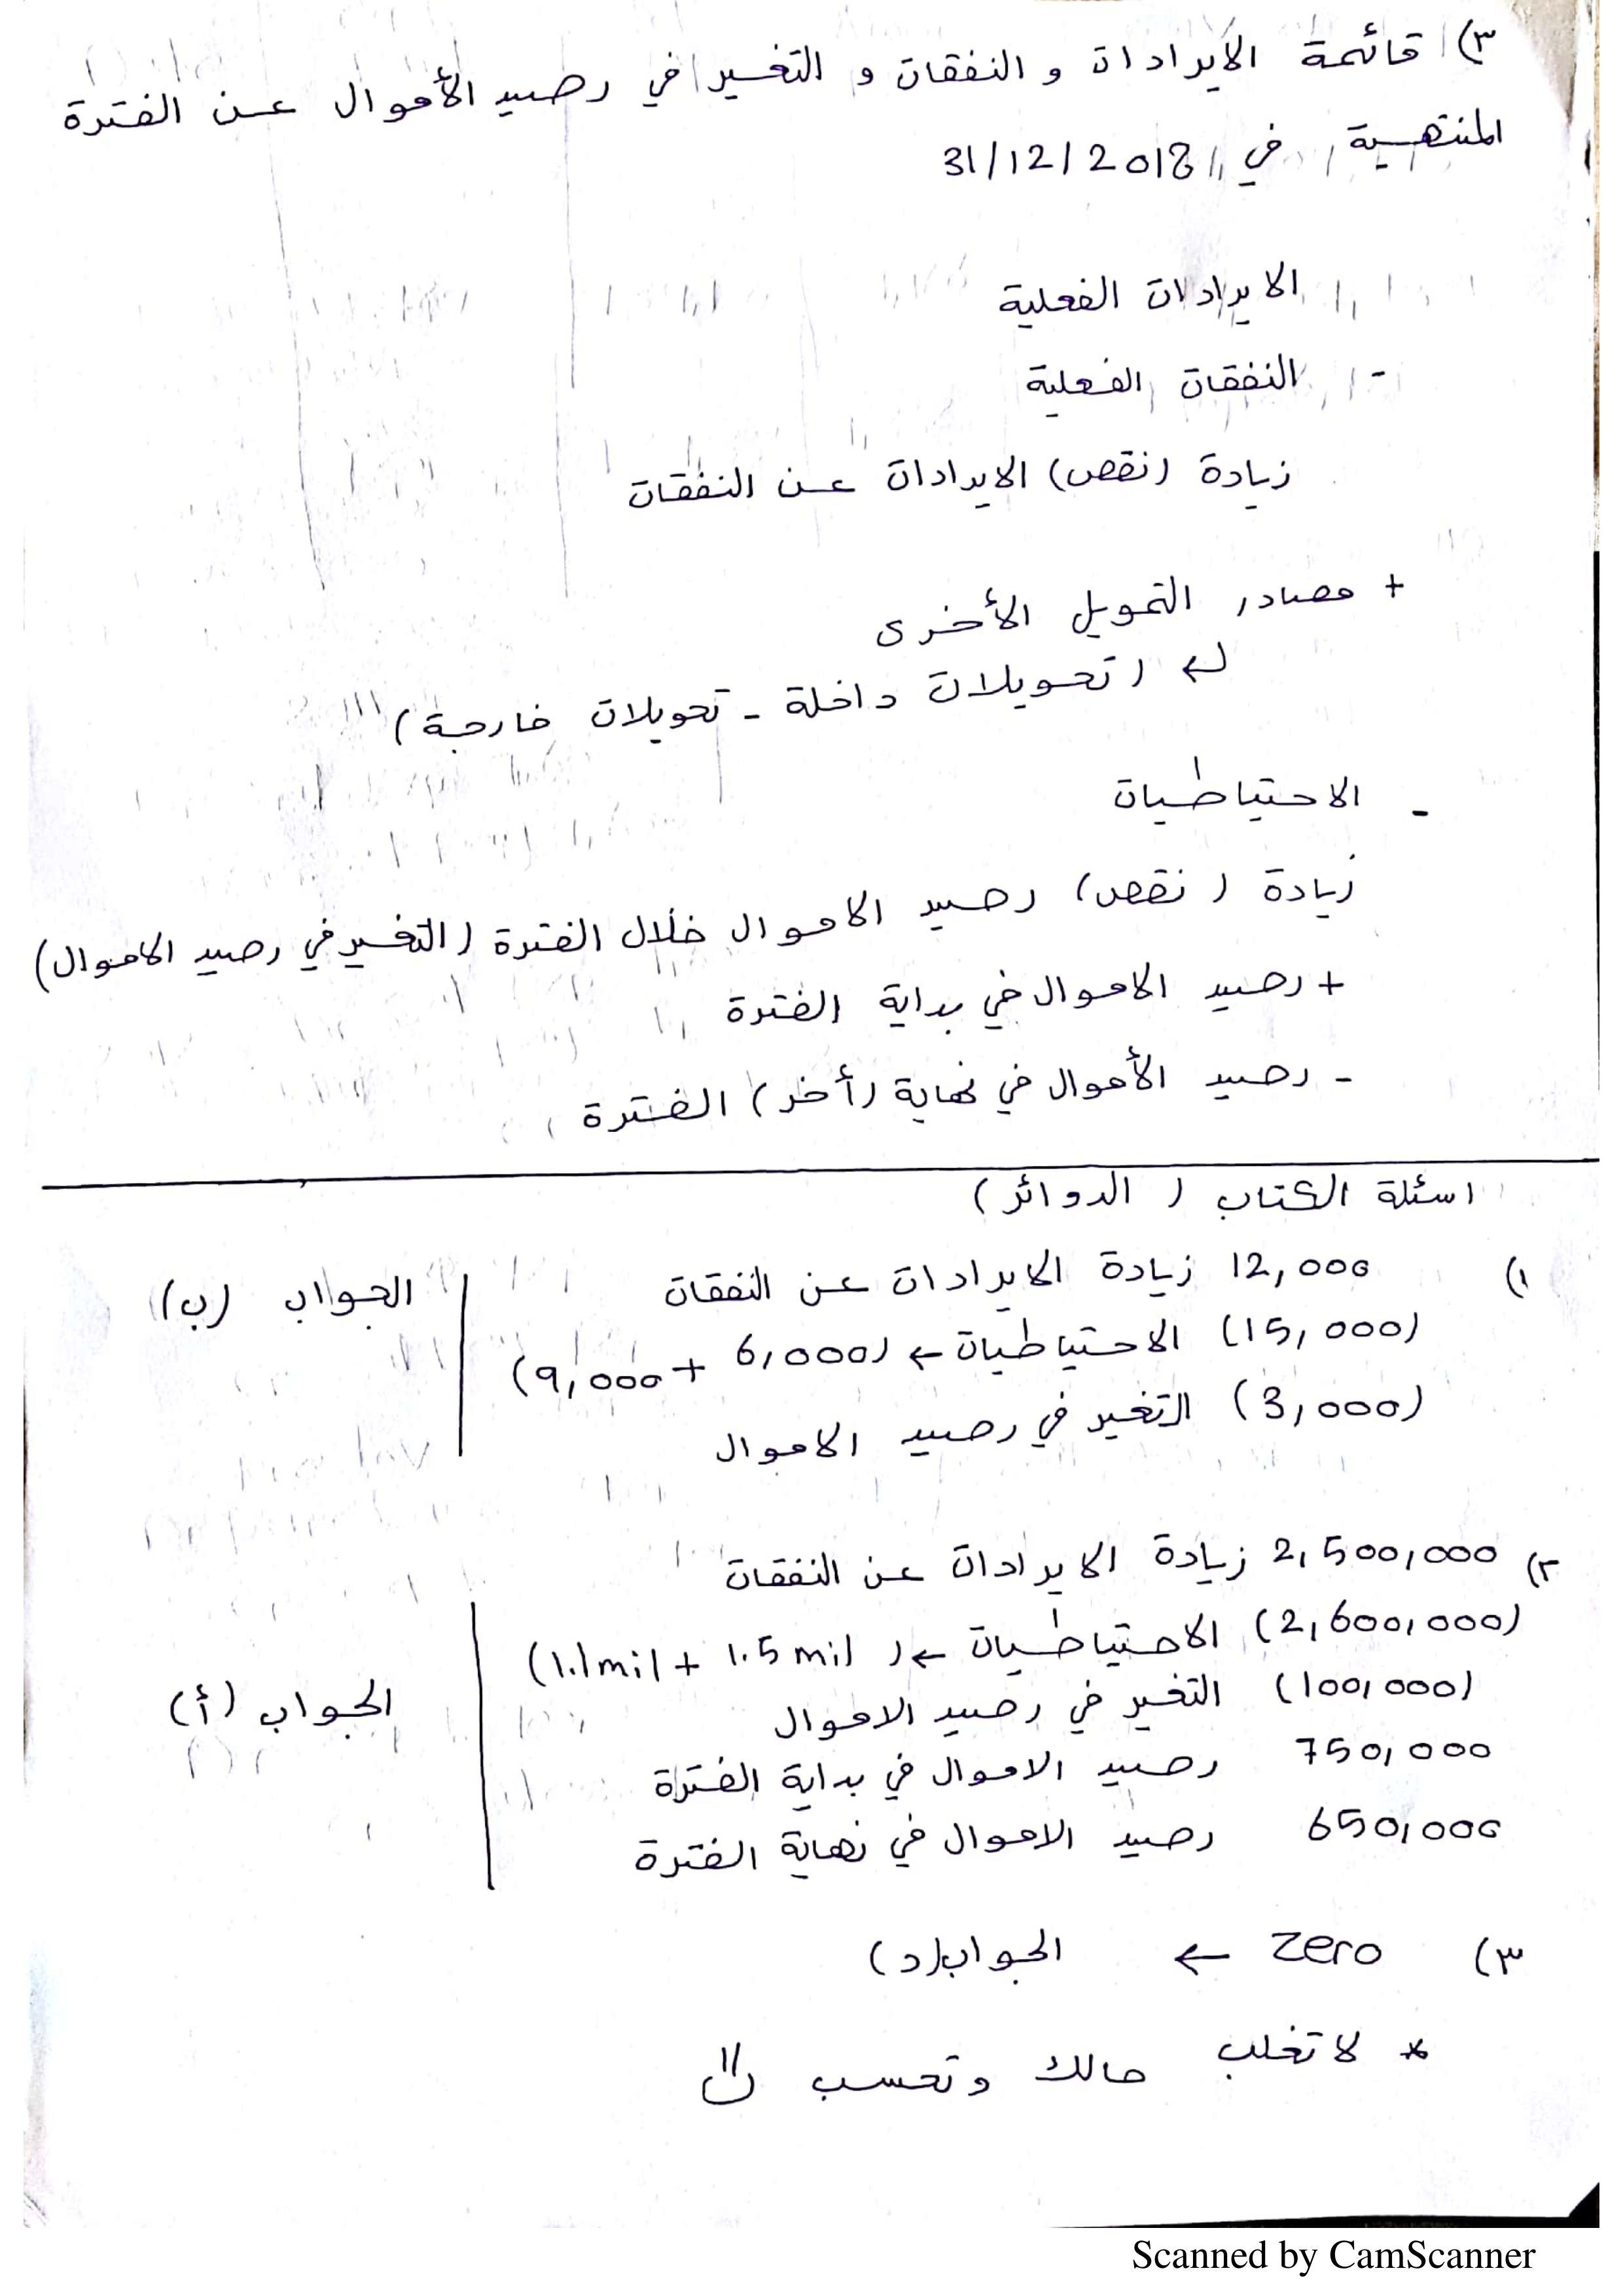 ٣) قائمة الايرادات و النفقات و التغير في رصيد الأموال عن الفترة
المنتهية في 31/12/2018
الايرادات الفعلية
- النفقات الفعلية
زيادة (نقص) الايرادات عن النفقات
+ مصادر التمويل الأخرى
↵ (تحويلات داخلة - تحويلات خارجة)
- الاحتياطيات
زيادة (نقص) رصيد الاموال خلال الفترة (التغير في رصيد الاموال)
+ رصيد الاموال في بداية الفترة
- رصيد الأموال في نهاية (أخر) الفترة
اسئلة الكتاب (الدوائر)
١) 12,000 زيادة الايرادات عن النفقات
(15,000) الاحتياطيات ← (6,000 + 9,000)
(3,000) التغير في رصيد الاموال
الجواب (ب)
٢) 2,500,000 زيادة الايرادات عن النفقات
(2,600,000) الاحتياطيات ← (1.1mil + 1.5 mil)
(100,000) التغير في رصيد الاموال
750,000 رصيد الاموال في بداية الفترة
650,000 رصيد الاموال في نهاية الفترة
الجواب (أ)
٣) zero ← الجواب (د)
* لا تغلب حالك وتحسب
Scanned by CamScanner